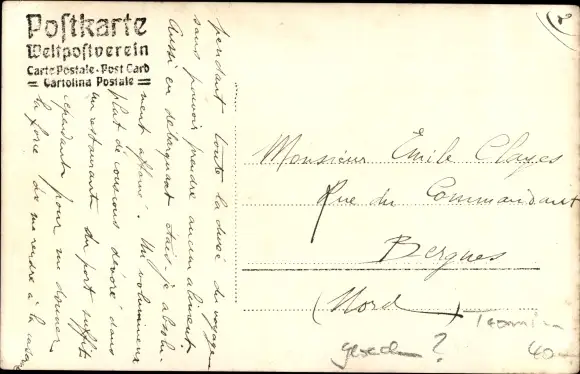 Postkarte
Weltpostverein
Carte Postale - Post Card
= Cartolina Postale =
pendant toute la durée du voyage
sans pouvoir prendre aucun aliment
Aussi en débarquant étais-je absolu-
ment affamé. Un volumineux
plat de dévoré dans
un restaurant du port suffit
cependant pour me donner
la force de me rendre à la
Monsieur Emile Clayes
Rue du Commandant
Bergues
(Nord)
?
40